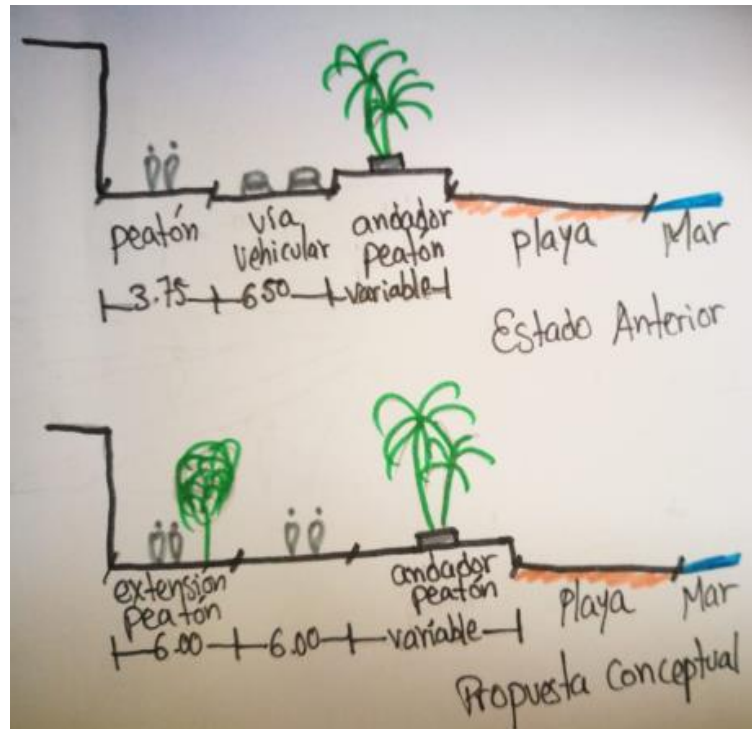 peatón
vía
vehicular
andador
peatón
variable
playa
Mar
3.75
650
Estado Anterior
extensión
peatón
andador
peatón
Playa
Mar
6.00
6.00
variable
Propuesta Conceptual